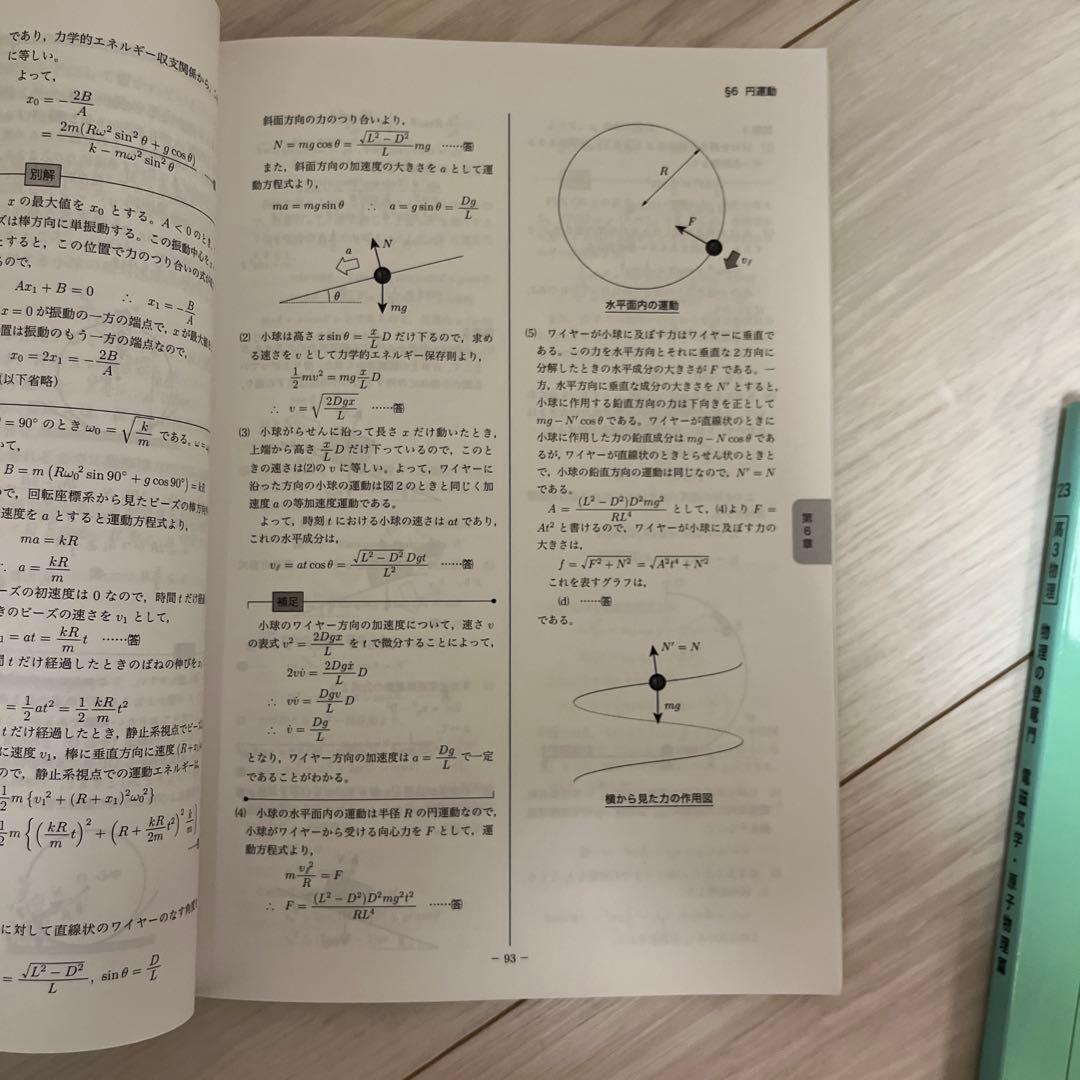 であり，力学的エネルギー収支関係から，
に等しい。
よって，
x₀ = −2B/A
= 2m(Rω² sin² θ + g cos θ)/(k − mω² sin² θ)
別解
xの最大値を x₀ とする。A < 0 のとき，
ズは棒方向に単振動する。この振動中心を
とすると，この位置で力のつり合いの式が
るので，
Ax₁ + B = 0 ∴ x₁ = −B/A
x = 0 が振動の一方の端点で，x が最大
置は振動のもう一方の端点なので，
x₀ = 2x₁ = −2B/A
(以下省略)
= 90° のとき ω₀ = √(k/m) である。
いて，
B = m (Rω₀² sin 90° + g cos 90°)
ので，回転座標系から見たビーズの棒方向
速度を a とすると運動方程式より，
ma = kR
∴ a = kR/m
ーズの初速度は 0 なので，時間 t だけ経過
きのビーズの速さを v₁ として，
₁ = at = kR/m t ……答
間 t だけ経過したときのばねの伸びを
= 1/2 at² = 1/2 kR/m t²
t だけ経過したとき，静止系視点でビー
に速度 v₁，棒に垂直方向に速度 (R +
ので，静止系視点での運動エネルギー
1/2 m {v₁² + (R + x₁)² ω₀²}
1/2 m {(kR/m t)² + (R + kR/2m t²)² k/m}
に対して直線状のワイヤーのなす角度
= √(L² − D²)/L , sin θ = D/L
§6 円運動
斜面方向の力のつり合いより，
N = mg cos θ = √(L² − D²)/L mg ……答
また，斜面方向の加速度の大きさを a として運
動方程式より，
ma = mg sin θ ∴ a = g sin θ = Dg/L
N
a
θ
mg
(2) 小球は高さ x sin θ = x/L D だけ下るので，求め
る速さを v として力学的エネルギー保存則より，
1/2 mv² = mg x/L D
∴ v = √(2Dgx/L) ……答
(3) 小球がらせんに沿って長さ x だけ動いたとき，
上端から高さ x/L D だけ下っているので，このと
きの速さは(2)の v に等しい。よって，ワイヤーに
沿った方向の小球の運動は図2のときと同じく加
速度 a の等加速度運動である。
よって，時刻 t における小球の速さは at であり，
これの水平成分は，
v_ℓ = at cos θ = √(L² − D²) Dgt/L² ……答
補足
小球のワイヤー方向の加速度について，速さ v
の表式 v² = 2Dgx/L を t で微分することによって，
2vv̇ = 2Dgẋ/L D
∴ vv̇ = Dgv/L D
∴ v̇ = Dg/L
となり，ワイヤー方向の加速度は a = Dg/L で一定
であることがわかる。
(4) 小球の水平面内の運動は半径 R の円運動なので，
小球がワイヤーから受ける向心力を F として，運
動方程式より，
m v_ℓ²/R = F
∴ F = (L² − D²)D²mg²t²/RL⁴ ……答
R
F
v_ℓ
水平面内の運動
(5) ワイヤーが小球に及ぼす力はワイヤーに垂直で
ある。この力を水平方向とそれに垂直な2方向に
分解したときの水平成分の大きさが F である。一
方，水平方向に垂直な成分の大きさを N′ とすると，
小球に作用する鉛直方向の力は下向きを正として
mg − N′ cos θ である。ワイヤーが直線状のときに
小球に作用した力の鉛直成分は mg − N cos θ であ
るが，ワイヤーが直線状のときとらせん状のときと
で，小球の鉛直方向の運動は同じなので，N′ = N
である。
A = (L² − D²)D²mg²/RL⁴ として，(4)より F =
At² と書けるので，ワイヤーが小球に及ぼす力の
大きさは，
f = √(F² + N²) = √(A²t⁴ + N²)
これを表すグラフは，
(d) ……答
である。
N′ = N
mg
横から見た力の作用図
第6章
− 93 −
23
高3物理
物理の登竜門 電磁気学・原子物理篇